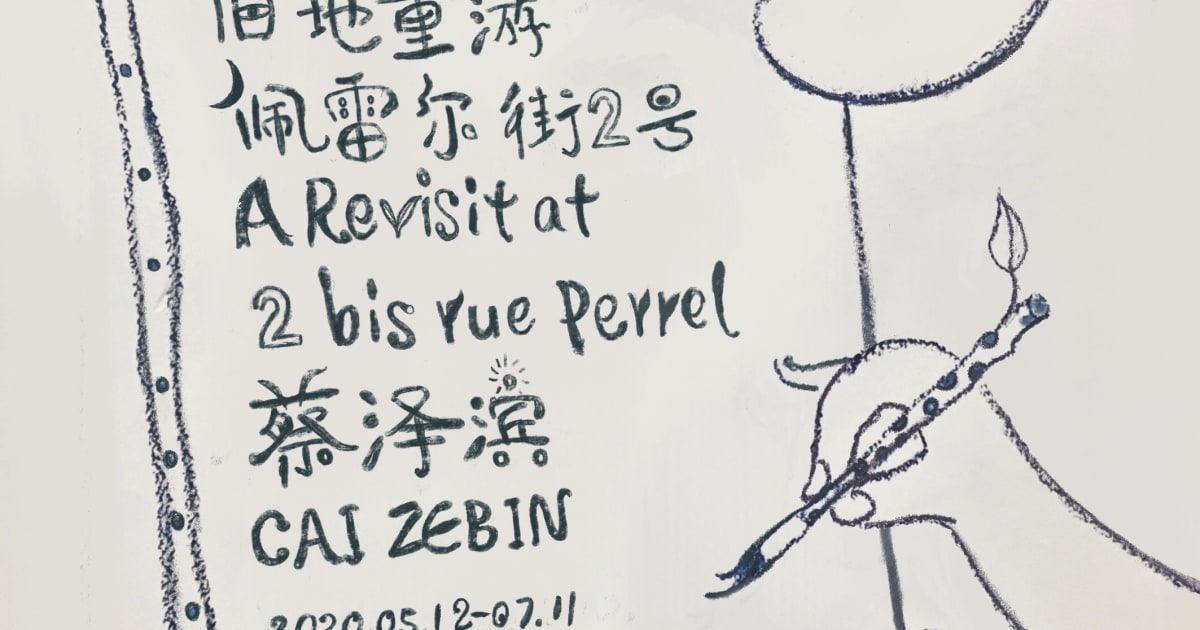 旧地重游
佩雷尔街2号
A Revisit at
2 bis rue Perrel
蔡泽滨
CAI ZEBIN
2020.05.12-07.11